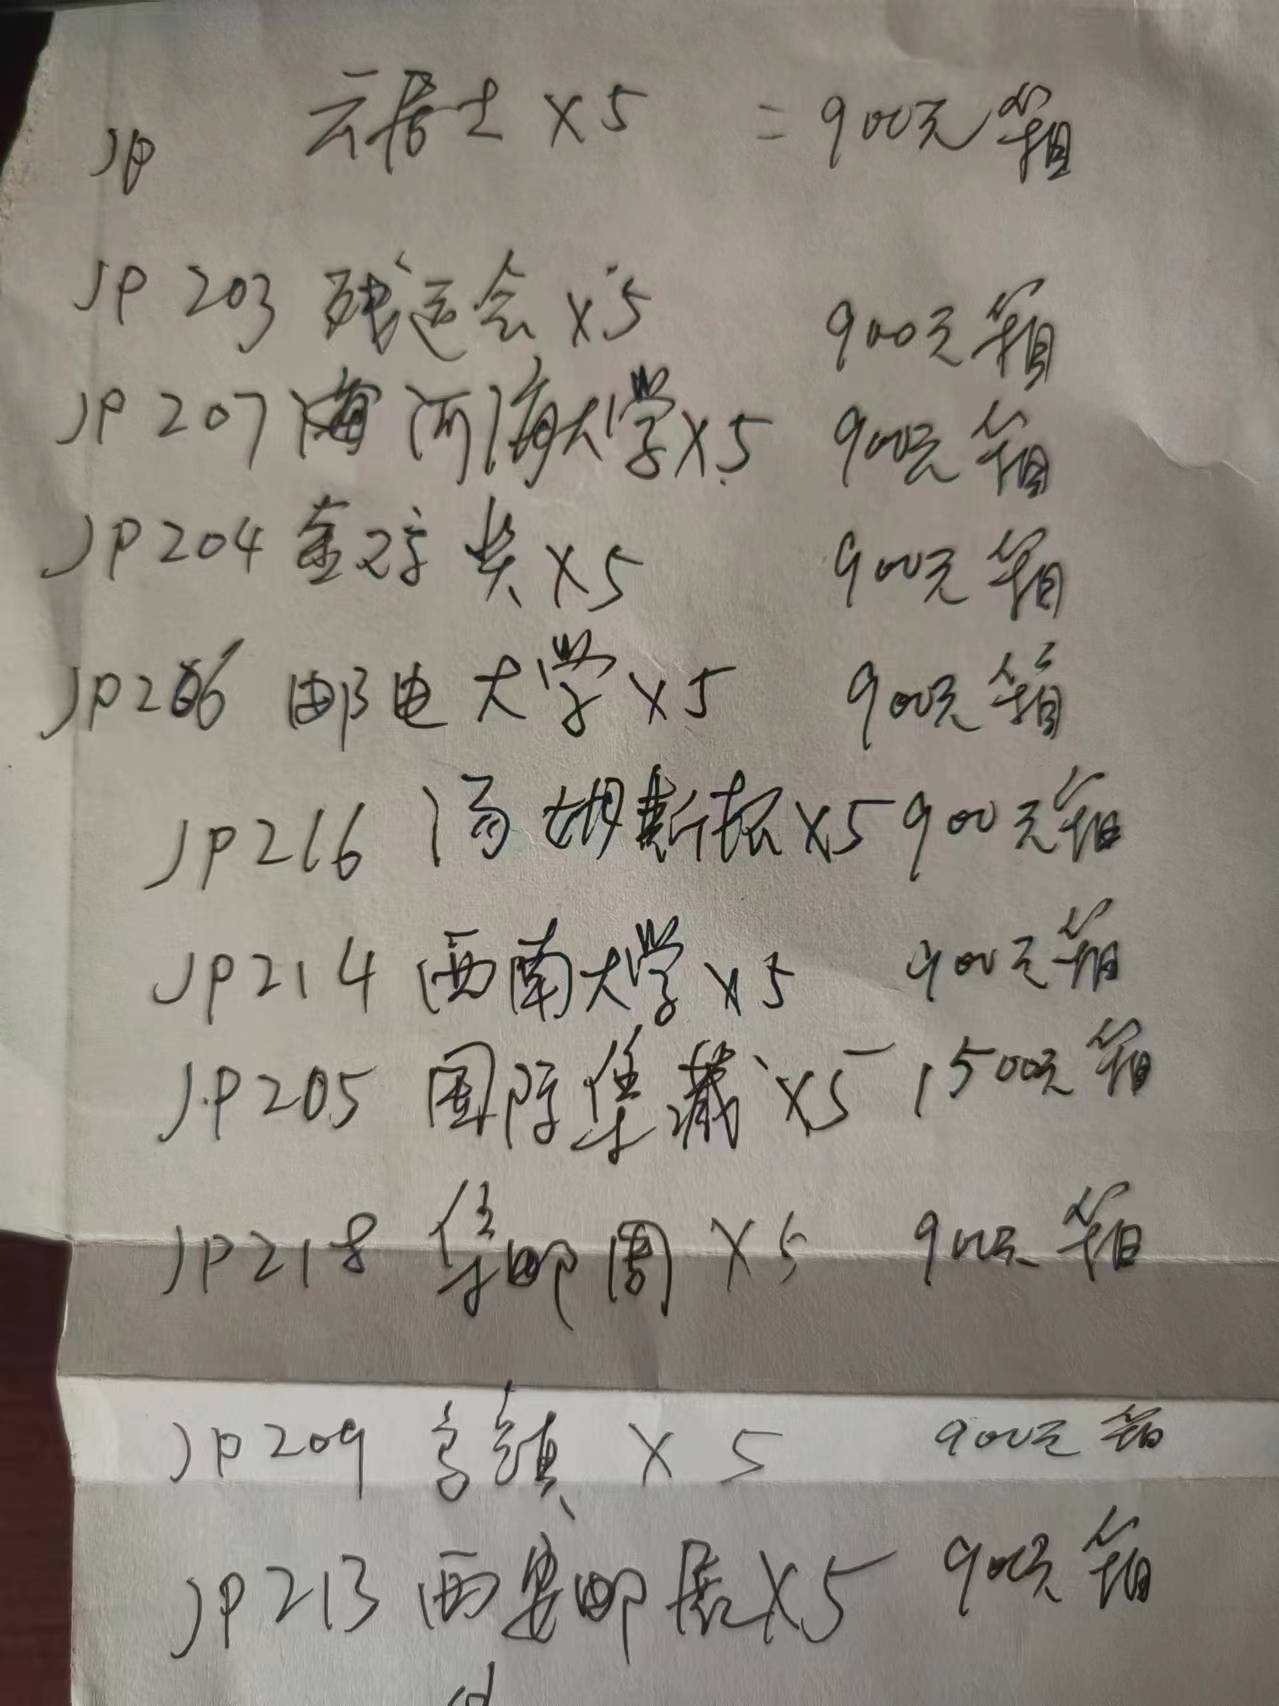 JP 云居士×5 =900元箱
JP203 残运会×5 900元箱
JP207 河海大学×5 900元箱
JP204 奖×5 900元箱
JP206 邮电大学×5 900元箱
JP216 汤姆斯杯×5 900元箱
JP214 西南大学×5 900元箱
JP205 国际集藏×5 1500元箱
JP218 集邮周×5 900元箱
JP209 镇×5 900元箱
JP213 西安邮展×5 900元箱